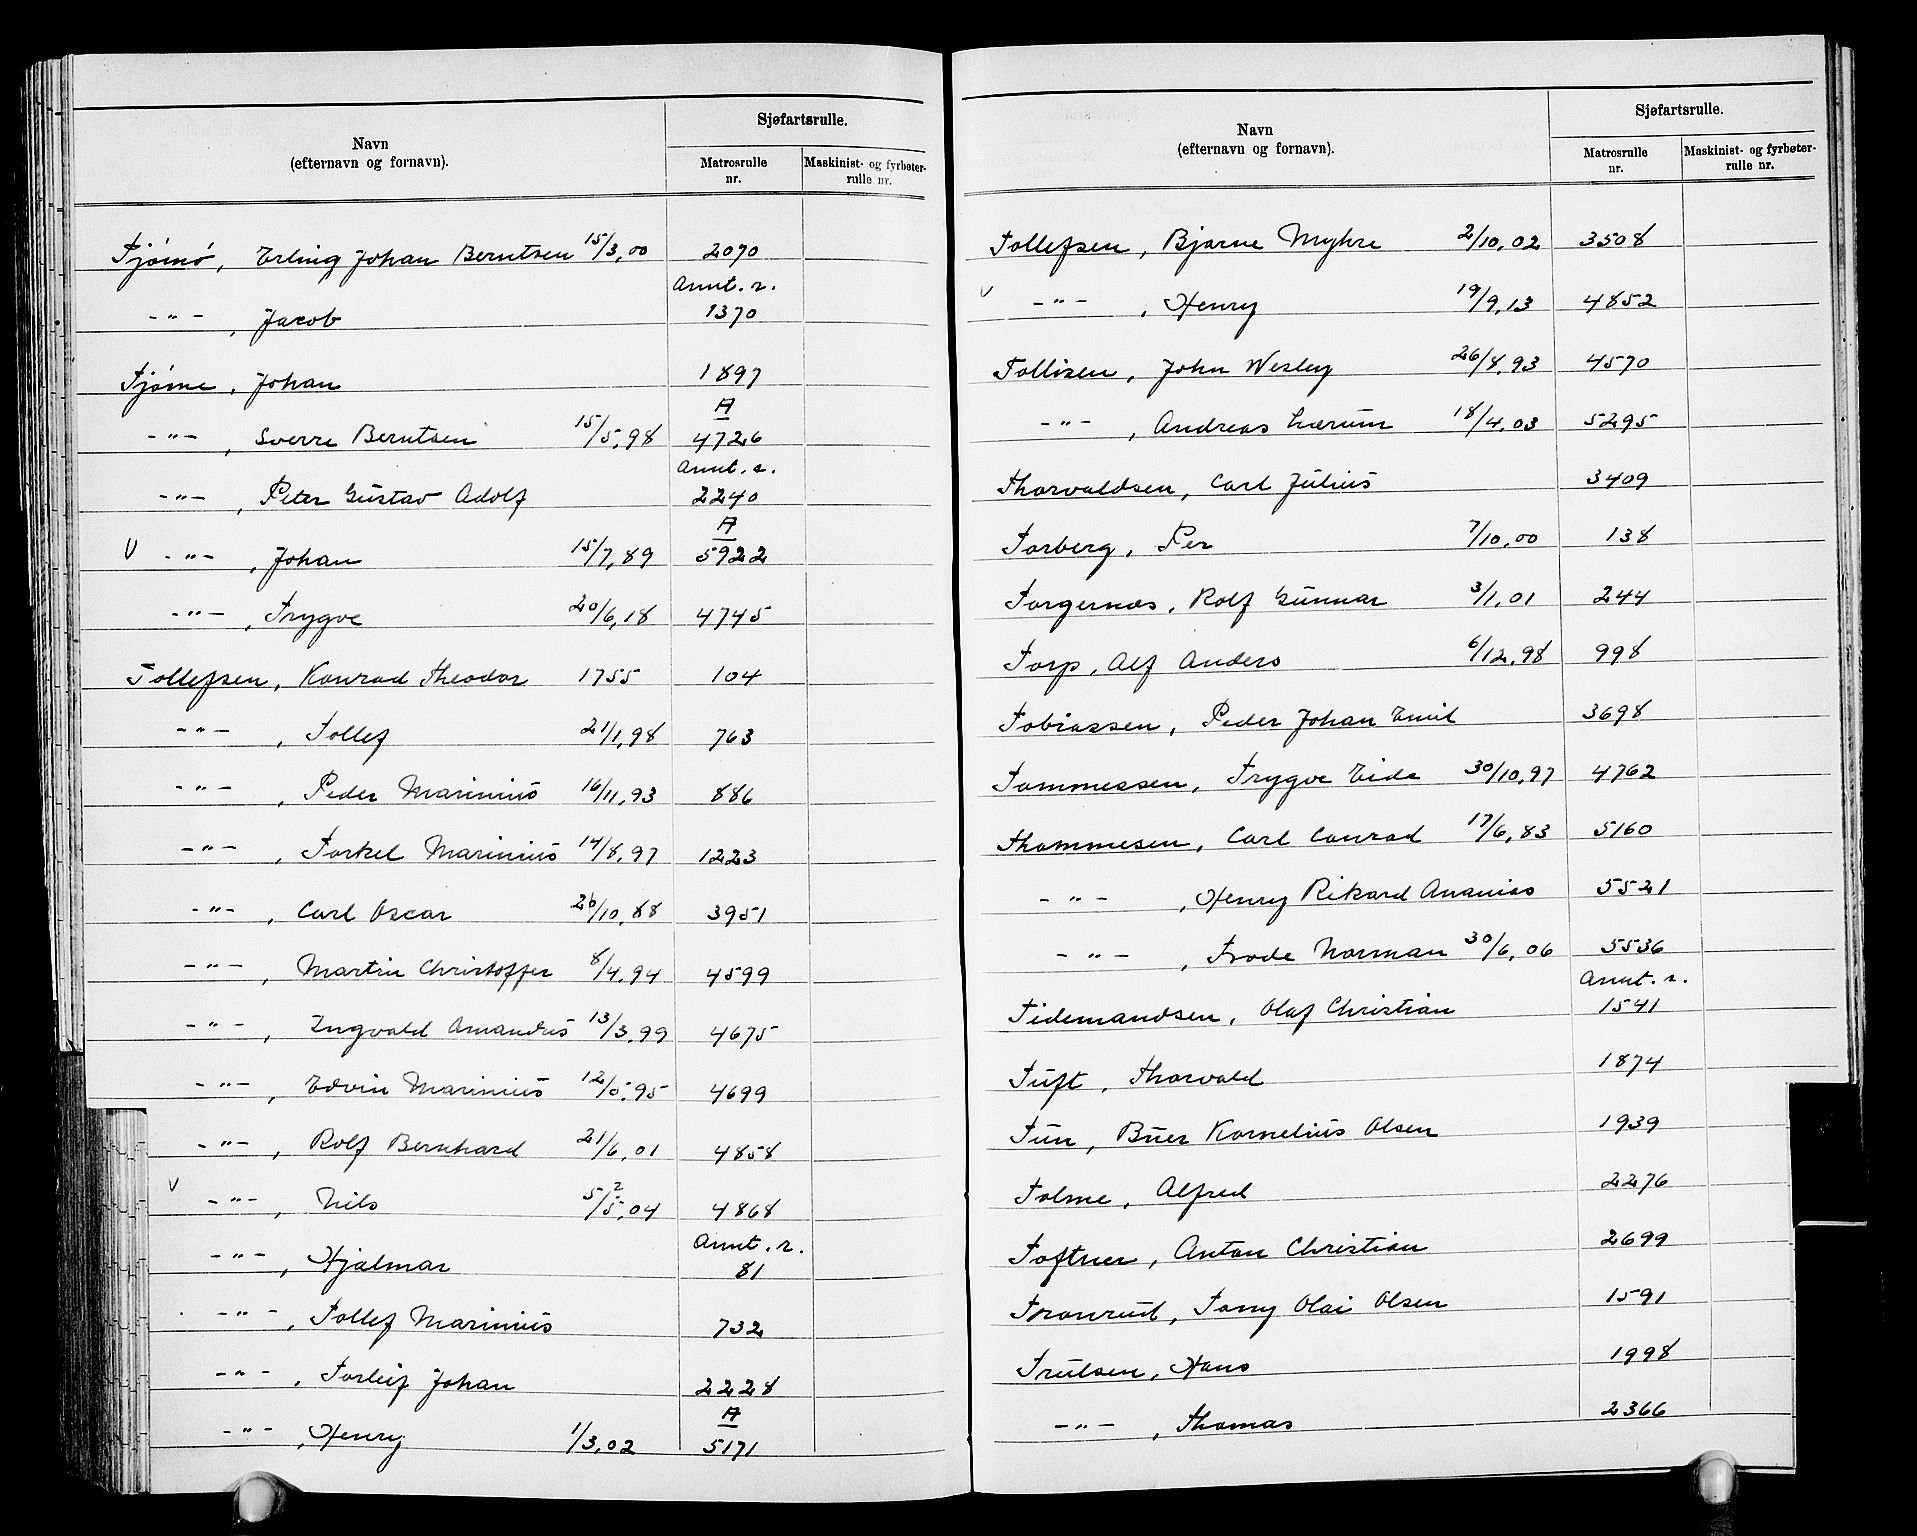 Navn
(efternavn og fornavn).
Sjøfartsrulle.
Matrosrulle nr.
Maskinist- og fyrbøter-rulle nr.
Tjömö, Erling Johan Berntsen 15/3,00 2070
Annt. r.
-"- , Jacob 1370
Tjöme, Johan 1897
A
-"- , Sverre Berntsen 15/5,98 4726
Annt. r.
-"- , Peter Gustav Adolf 2240
A
V -"- , Johan 15/7,89 5922
-"- , Trygve 20/6,18 4745
Tollefsen, Konrad Theodor 1755 104
-"- , Tollef 21/1,98 763
-"- , Peder Marinius 16/11,93 886
-"- , Torkel Marinius 14/8,97 1223
-"- , Carl Oscar 26/10,88 3951
-"- , Martin Christoffer 8/4,94 4599
-"- , Ingvald Amandus 13/3,99 4675
-"- , Edvin Marinius 12/5,95 4699
-"- , Rolf Bernhard 21/6,01 4858
V -"- , Nils 5/5,04 4868
Annt. r.
-"- , Hjalmar 81
-"- , Tollef Marinius 732
-"- , Torleif Johan 2228
A
-"- , Henry 1/3,02 5171
Navn
(efternavn og fornavn).
Sjøfartsrulle.
Matrosrulle nr.
Maskinist- og fyrbøter-rulle nr.
Tollefsen, Bjarne Myhre 2/10,02 3508
V -"- , Henry 19/9,13 4852
Tollisen, John Wesley 26/8,93 4570
-"- , Andreas Lærum 18/4,03 5295
Thorvaldsen, Carl Julius 3409
Torberg, Per 7/10,00 138
Torgernæs, Rolf Gunnar 3/1,01 244
Torp, Alf Anders 6/12,98 998
Tobiassen, Peder Johan Emil 3698
Tommessen, Trygve Eide 30/10,97 4762
Thommesen, Carl Conrad 17/6,83 5160
-"- , Henry Rikard Ananias 5521
-"- , Frode Norman 30/6,06 5536
Annt. r.
Tidemandsen, Olaf Christian 1541
Tuft, Thorvald 1874
Tun, Buer Kornelius Olsen 1939
Tolme, Alfred 2276
Toftner, Anton Christian 2699
Tranrud, Tony Olai Olsen 1591
Trulsen, Hans 1998
-"- , Thomas 2366